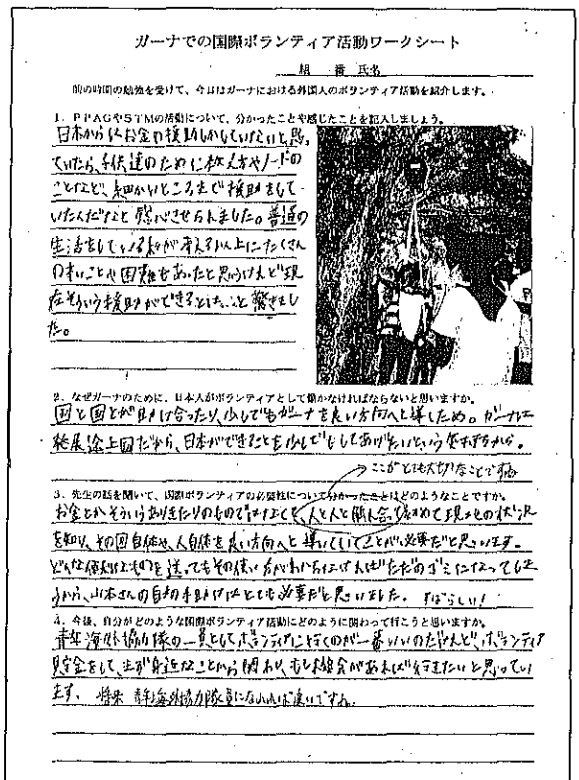 ガーナでの国際ボランティア活動ワークシート
組 番 氏名
前の時間の勉強を受けて、今日はガーナにおける外国人のボランティア活動を紹介します。
1．PPAGやSTMの活動について、分かったことや感じたことを記入しましょう。
日本からはお金の援助しかしていないと思っ
ていたら、子供達のために教え方やノートの
ことなど、細かいところまで援助をして
いたんだなと感心させられました。普通の
生活をしている私が考える以上にたくさん
の辛いことや困難もあったと思うけれど現
在そういう援助ができるということに驚きまし
た。
2．なぜガーナのために、日本人がボランティアとして働かなければならないと思いますか。
国と国とが助け合ったり、少しでもガーナを良い方向へと導くため。ガーナは
発展途上国だから、日本ができることを少しでもしてあげたいという気持ちから。
ここがとても大切なことですね
3．先生の話を聞いて、国際ボランティアの必要性について分かったことはどのようなことですか。
お金とかそういうありきたりのものではなくても、人と人と関わり合って初めて現地の状況
を知り、その国自体や、人自体を良い方向へと導いていくことが必要だと思います。
どんな便利なものを送ってもその使い方がわからなければただのゴミになってしま
うから、山本さんの自助の手助けはとても必要だと思いました。 すばらしい！
4．今後、自分がどのような国際ボランティア活動にどのように関わって行こうと思いますか。
青年海外協力隊の一員としてボランティアに行くのが一番いいのだけれど、ボランティア
貯金をして、まず身近なことから関わり、もし機会があれば行きたいと思ってい
ます。 将来 青年海外協力隊員になれれば良いですね。